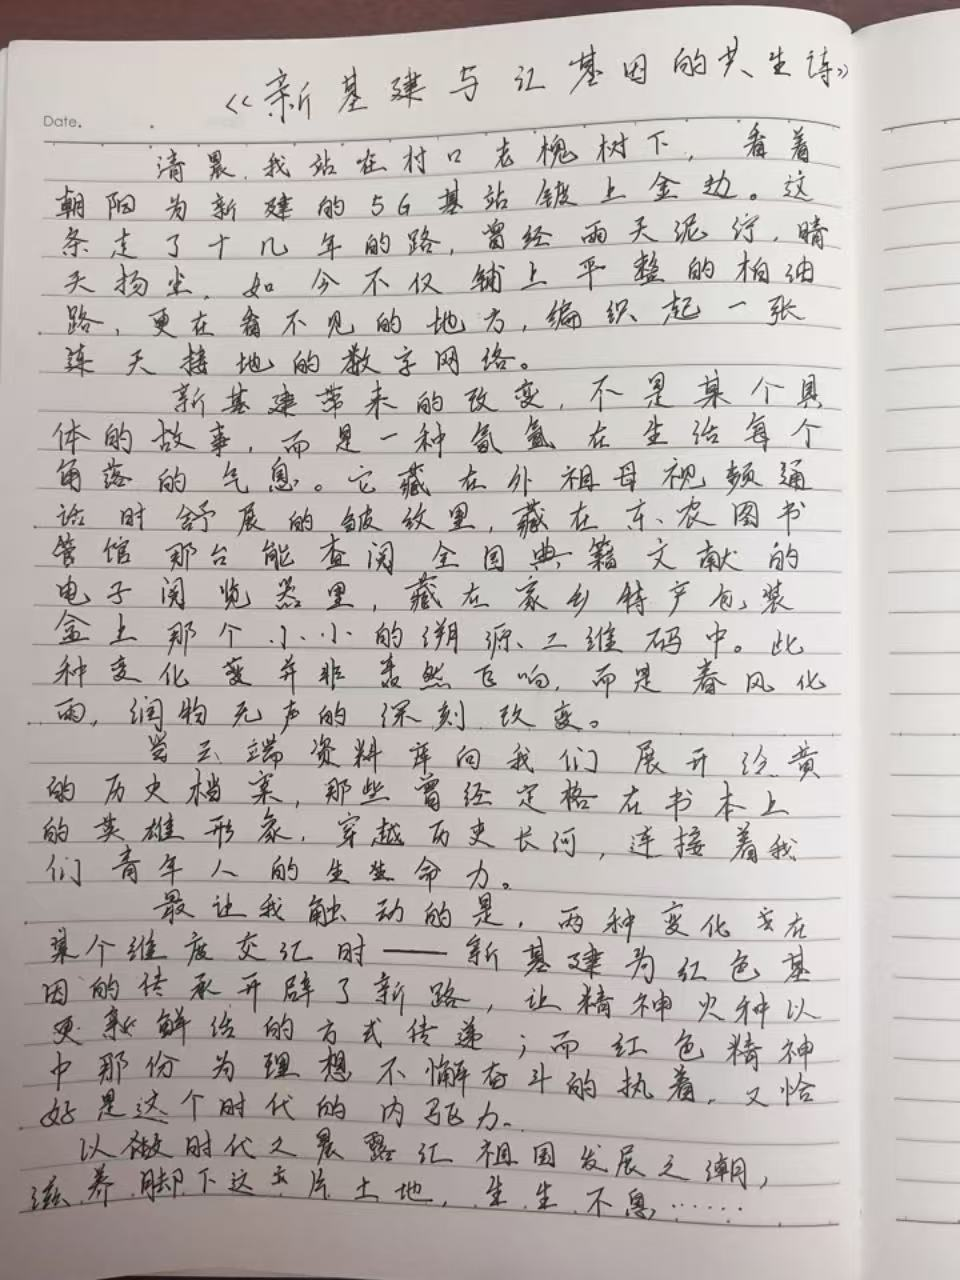 《新基建与红基因的共生诗》
Date.
清晨,我站在村口老槐树下,看着
朝阳为新建的5G基站镀上金边。这
条走了十几年的路,曾经雨天泥泞,晴
天扬尘,如今不仅铺上平整的柏油
路,更在看不见的地方,编织起一张
连天接地的数字网络。
新基建带来的改变,不是某个具
体的故事,而是一种氤氲在生活每个
角落的气息。它藏在外祖母视频通
话时舒展的皱纹里,藏在农图书
管馆那台能查阅全国典籍文献的
电子阅览器里,藏在家乡特产包装
盒上那个小小的溯源二维码中。此
种变化变并非轰然飞响,而是春风化
雨,润物无声的深刻改变。
当云端资料库向我们展开泛黄
的历史档案,那些曾经定格在书本上
的英雄形象,穿越历史长河,连接着我
们青年人的生生命力。
最让我触动的是,两种变化在
某个维度交汇时——新基建为红色基
因的传承开辟了新路,让精神火种以
更新鲜活的方式传递;而红色精神
中那份为理想不懈奋斗的执着,又恰
好是这个时代的内驱力。
以微时代之晨露汇祖国发展之潮,
滋养脚下这片土地,生生不息……